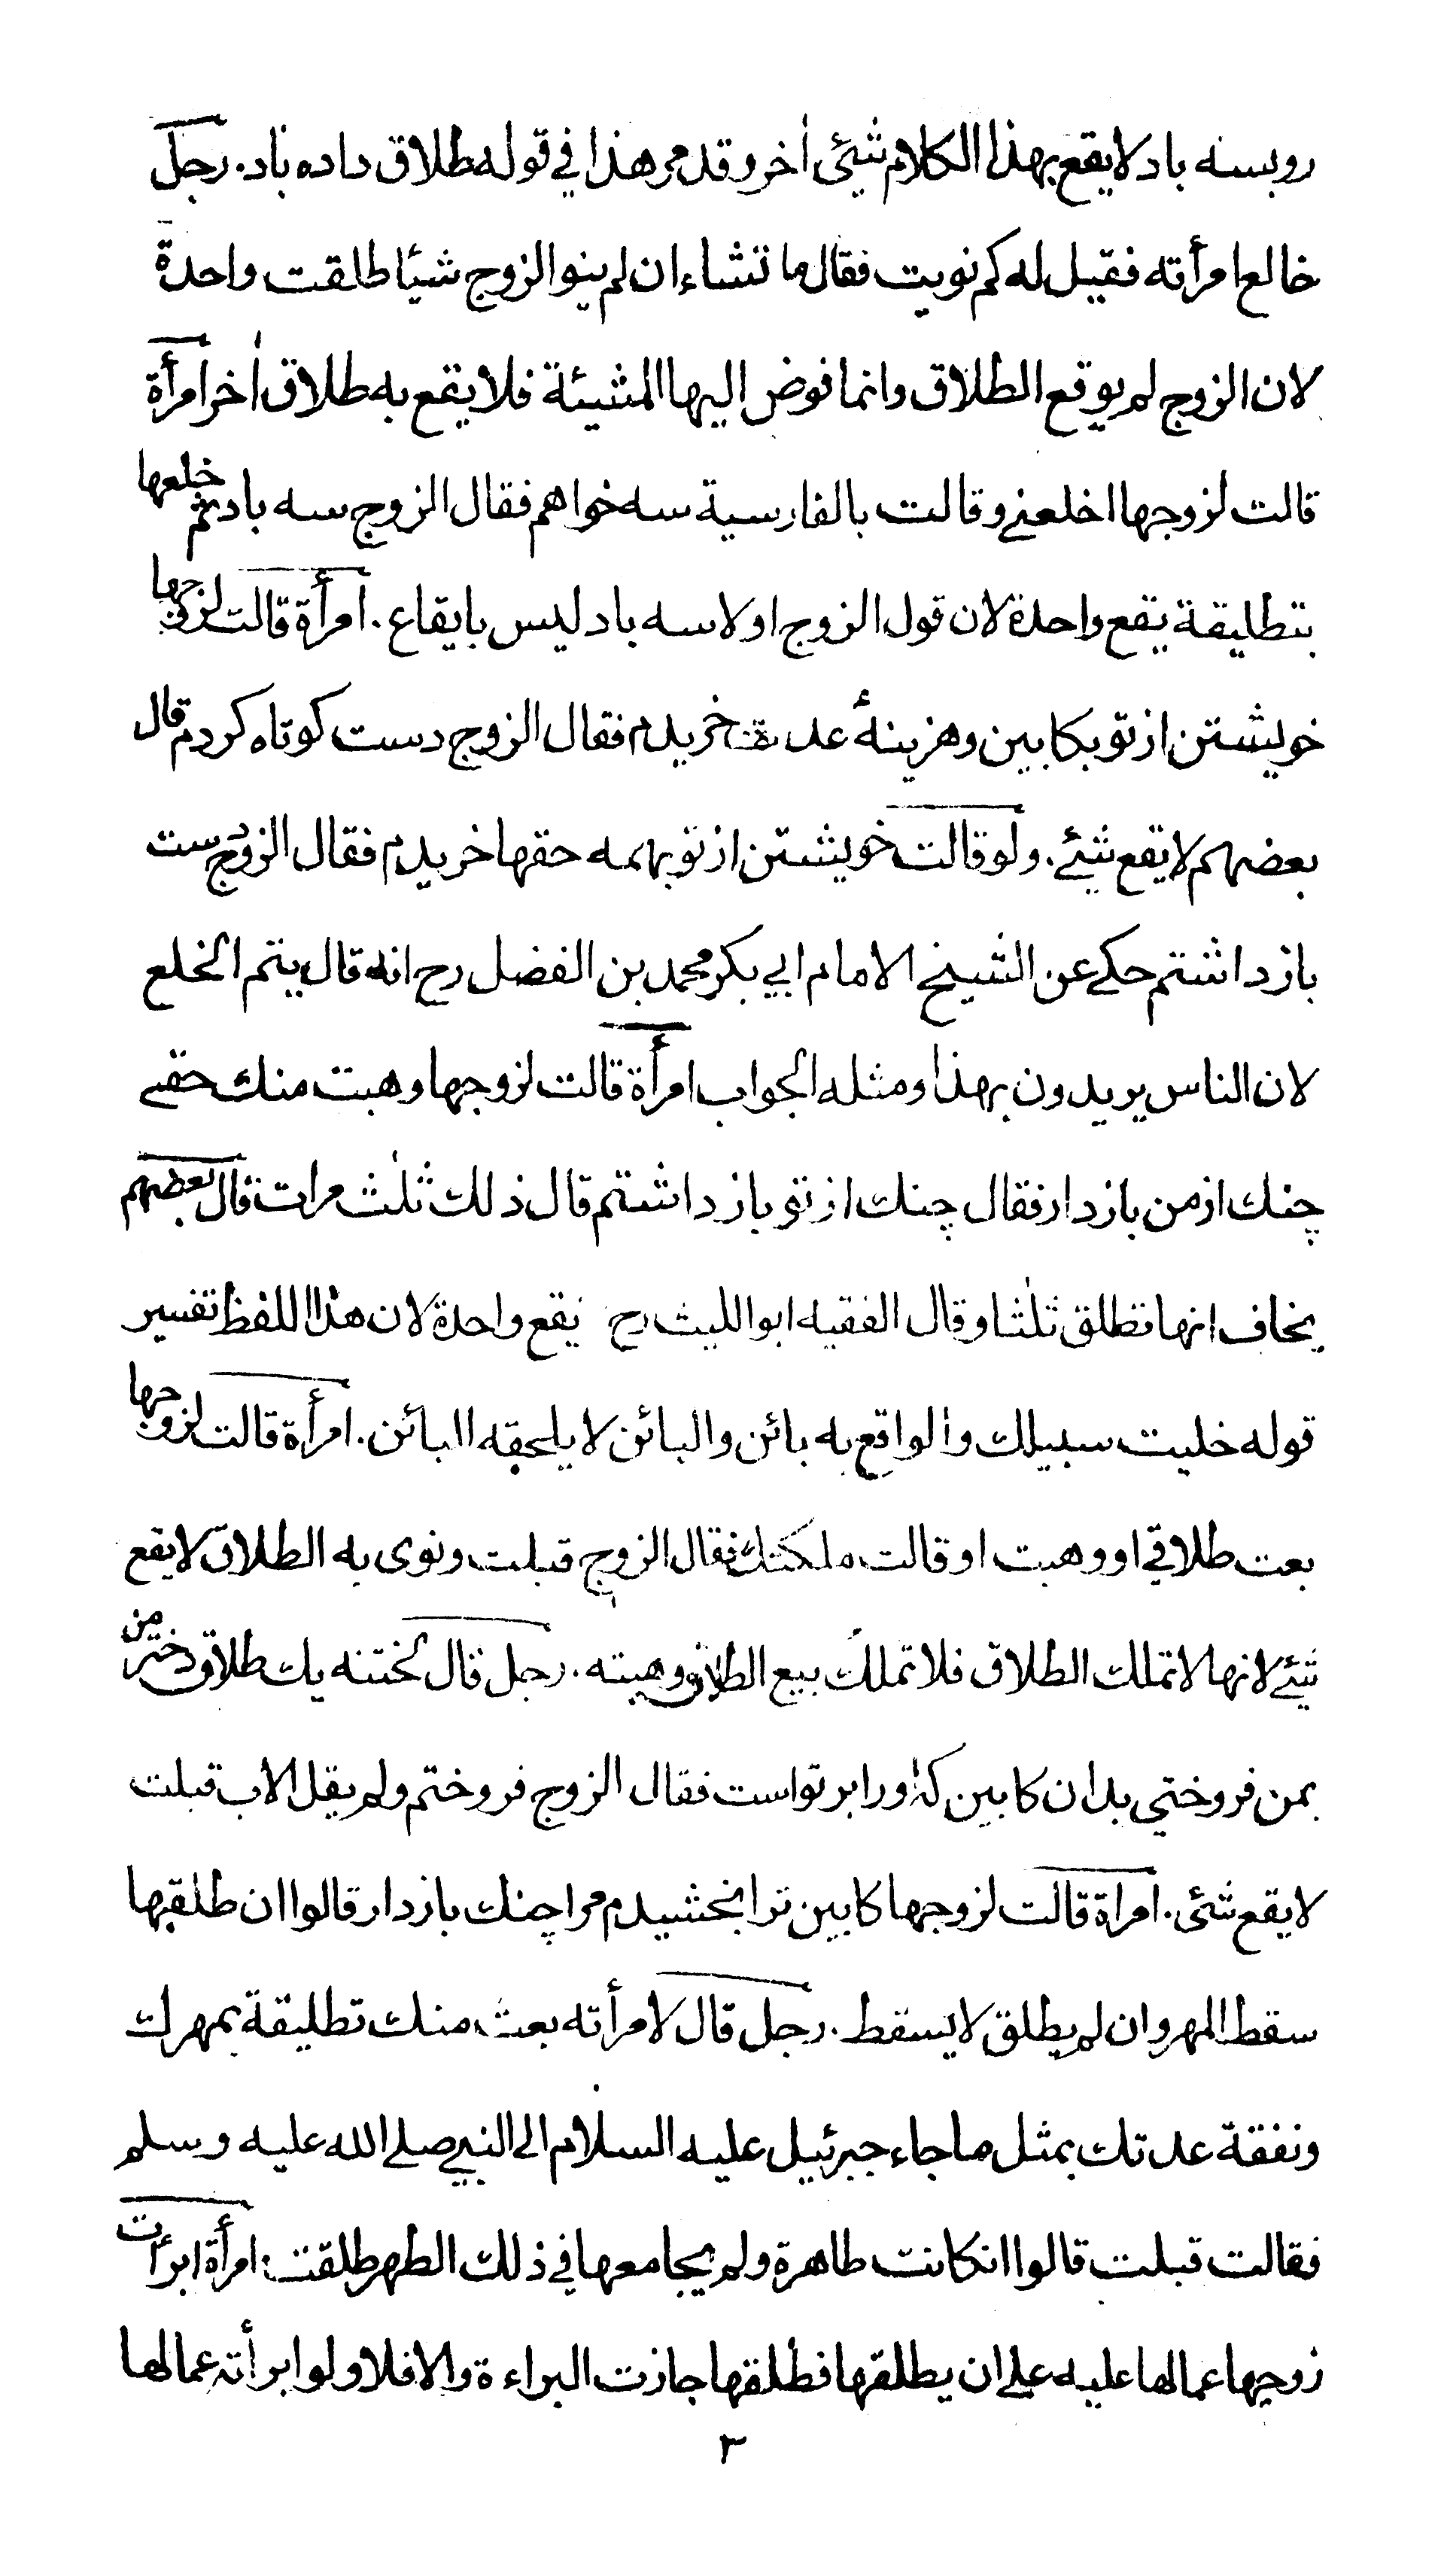 روبسه باد لا يقع بهذا الكلام شيئى اخر وقد مر هذا في قوله طلاق داده باد. رجل
خالع امرأته فقيل له كم نويت فقال ما تشاء ان لم ينو الزوج شيئا طلقت واحدة
لان الزوج لم يوقع الطلاق وانما فوض اليها المشيئة فلا يقع به طلاق اخر امرأة
قالت لزوجها اخلعنے وقالت بالفارسية سه خواهم فقال الزوج سه باد ثم خلعها
بتطليقة تقع واحدة لان قول الزوج اولا سه باد ليس بايقاع. امرأة قالت لزوجها
خويشتن از تو بكابين وهزينهٔ عدت خريدم فقال الزوج دست كوتاه كردم قال
بعضهم لا يقع شيئے. ولو قالت خويشتن از تو بهمه حقها خريدم فقال الزوج دست
باز داشتم حكے عن الشيخ الامام ابي بكر محمد بن الفضل رح انه قال يتم الخلع
لان الناس يريدون بهذا ومثله الجواب امرأة قالت لزوجها وهبت منك حقے
چنك از من باز دار فقال چنك از تو باز داشتم قال ذلك ثلث مرات قال بعضهم
يخاف انها تطلق ثلثا وقال الفقيه ابو الليث رح يقع واحدة لان هذا اللفظ تفسير
قوله خليت سبيلك والواقع به بائن والبائن لا يلحقه البائن. امرأة قالت لزوجها
بعت طلاقي او وهبت او قالت ملكتك فقال الزوج قبلت ونوى به الطلاق لا يقع
شيئے لانها لا تملك الطلاق فلا تملك بيع الطلاق وهبته. رجل قال لختنه يك طلاق دختر من
بمن فروختي بدان كابين كه اورا بر تو است فقال الزوج فروختم ولم يقل الاب قبلت
لا يقع شئى. امرأة قالت لزوجها كابين ترا بخشيدم مرا چنك باز دار قالوا ان طلقها
سقط المهر وان لم يطلق لا يسقط. رجل قال لامرأته بعت منك تطليقة بمهرك
ونفقة عدتك بمثل ما جاء جبرئيل عليه السلام الى النبي صلے الله عليه وسلم
فقالت قبلت قالوا انكانت طاهرة ولم يجامعها في ذلك الطهر طلقت: امرأة ابرأت
زوجها عما لها عليه علے ان يطلقها فطلقها جازت البراءة والا فلا ولو ابرأته عما لها
٣